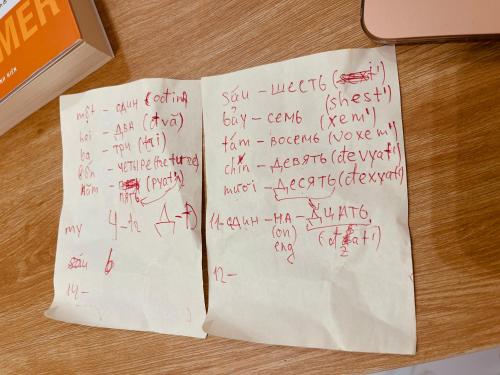 MER
một - один (odin)
hai - ДВА (dvă)
ba - ТРИ (tại)
bốn - ЧЕТЫРЕ
năm - (pyat')
ПЯТЬ
my 4 - ta Д - д
sáu 6
14 -
Sáu - ШЕСТЬ
(shest')
bảy - СЕМЬ (xem')
tám - ВОСЕМЬ (voxem')
chín - ДЕВЯТЬ (devyat')
mười - ДЕСЯТЬ (dexyat')
11 - один - НА - ДЦАТЬ
(on)
eng
12 -